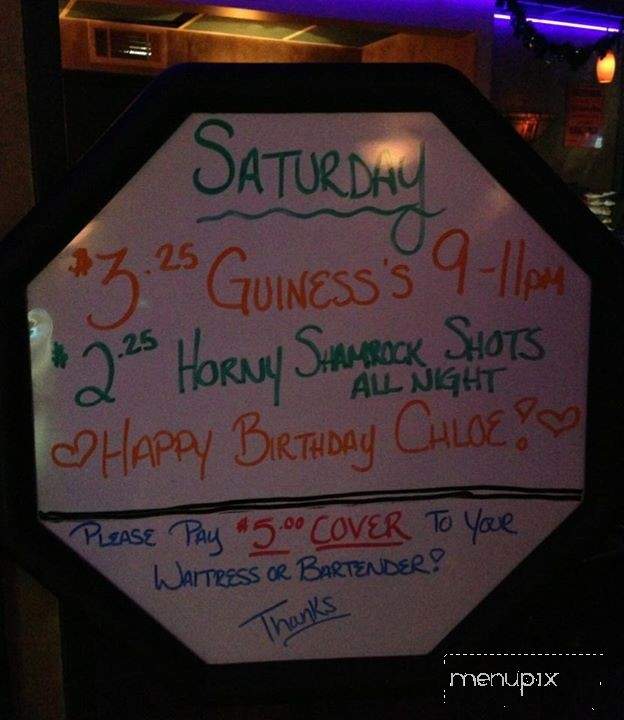 SATURDAY
$3.25 GUINESS'S 9-11PM
$2.25 HORNY SHAMROCK SHOTS
ALL NIGHT
♡HAPPY BIRTHDAY CHLOE!♡
PLEASE PAY $5.00 COVER TO YOUR
WAITRESS OR BARTENDER!
Thanks
menupix